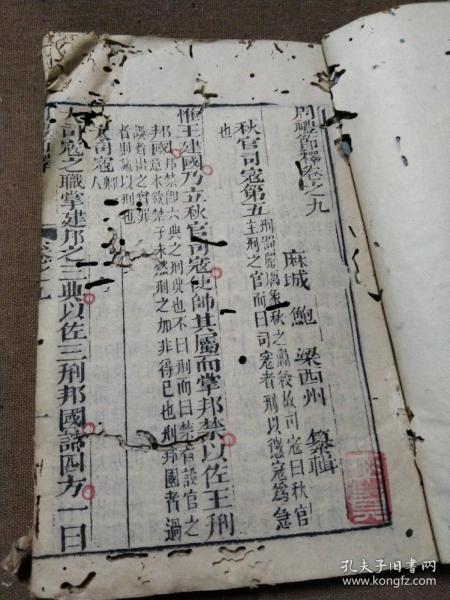 周禮節釋卷之九
麻城 鮑 梁西州 纂輯
秋官司寇第五
刑罰嚴厲象秋之肅殺故司寇曰秋官
主刑之官而曰司寇者刑以懲寇為急
也
惟王建國乃立秋官司寇使帥其屬而掌邦禁以佐王刑
邦國
邦禁即六典之刑典也不曰刑而曰禁者設官之
意本欲禁于未然刑之加非得已也刑邦國者過
誤者出之實罪
者則施以刑也
大司寇卿一人
大司寇之職掌建邦之三典以佐王刑邦國詰四方一曰
卷之九
孔夫子旧书网
www.kongfz.com